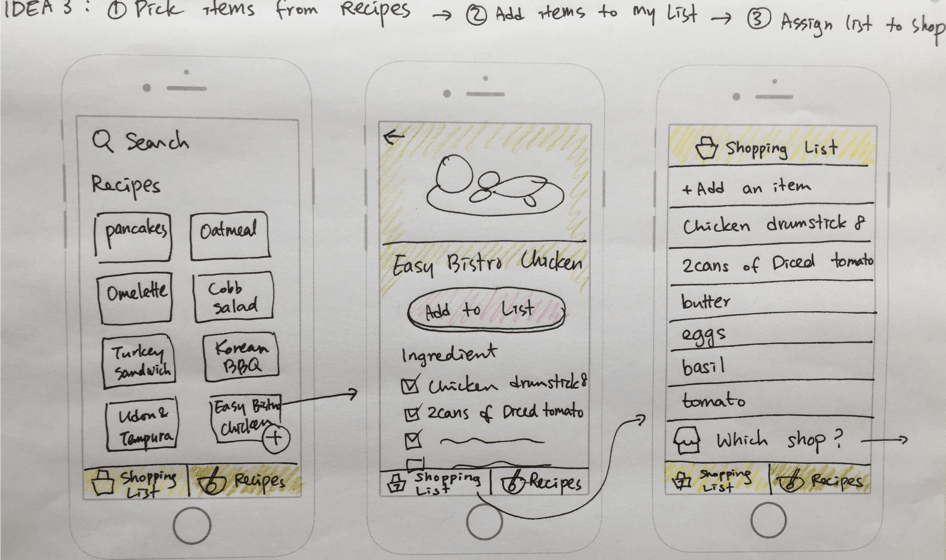 IDEA 3 : ① Pick items from Recipes → ② Add items to my List → ③ Assign list to shop
Search
Recipes
pancakes
Oatmeal
Omelette
Cobb
salad
Turkey
Sandwich
Korean
BBQ
Udon &
Tempura
Easy Bistro
Chicken
+
Shopping
List
Recipes
←
Easy Bistro Chicken
Add to List
Ingredient
Chicken drumstick 8
2cans of Diced tomato
Shopping
List
Recipes
Shopping List
+ Add an item
Chicken drumstick 8
2cans of Diced tomato
butter
eggs
basil
tomato
Which shop? →
Shopping
List
Recipes